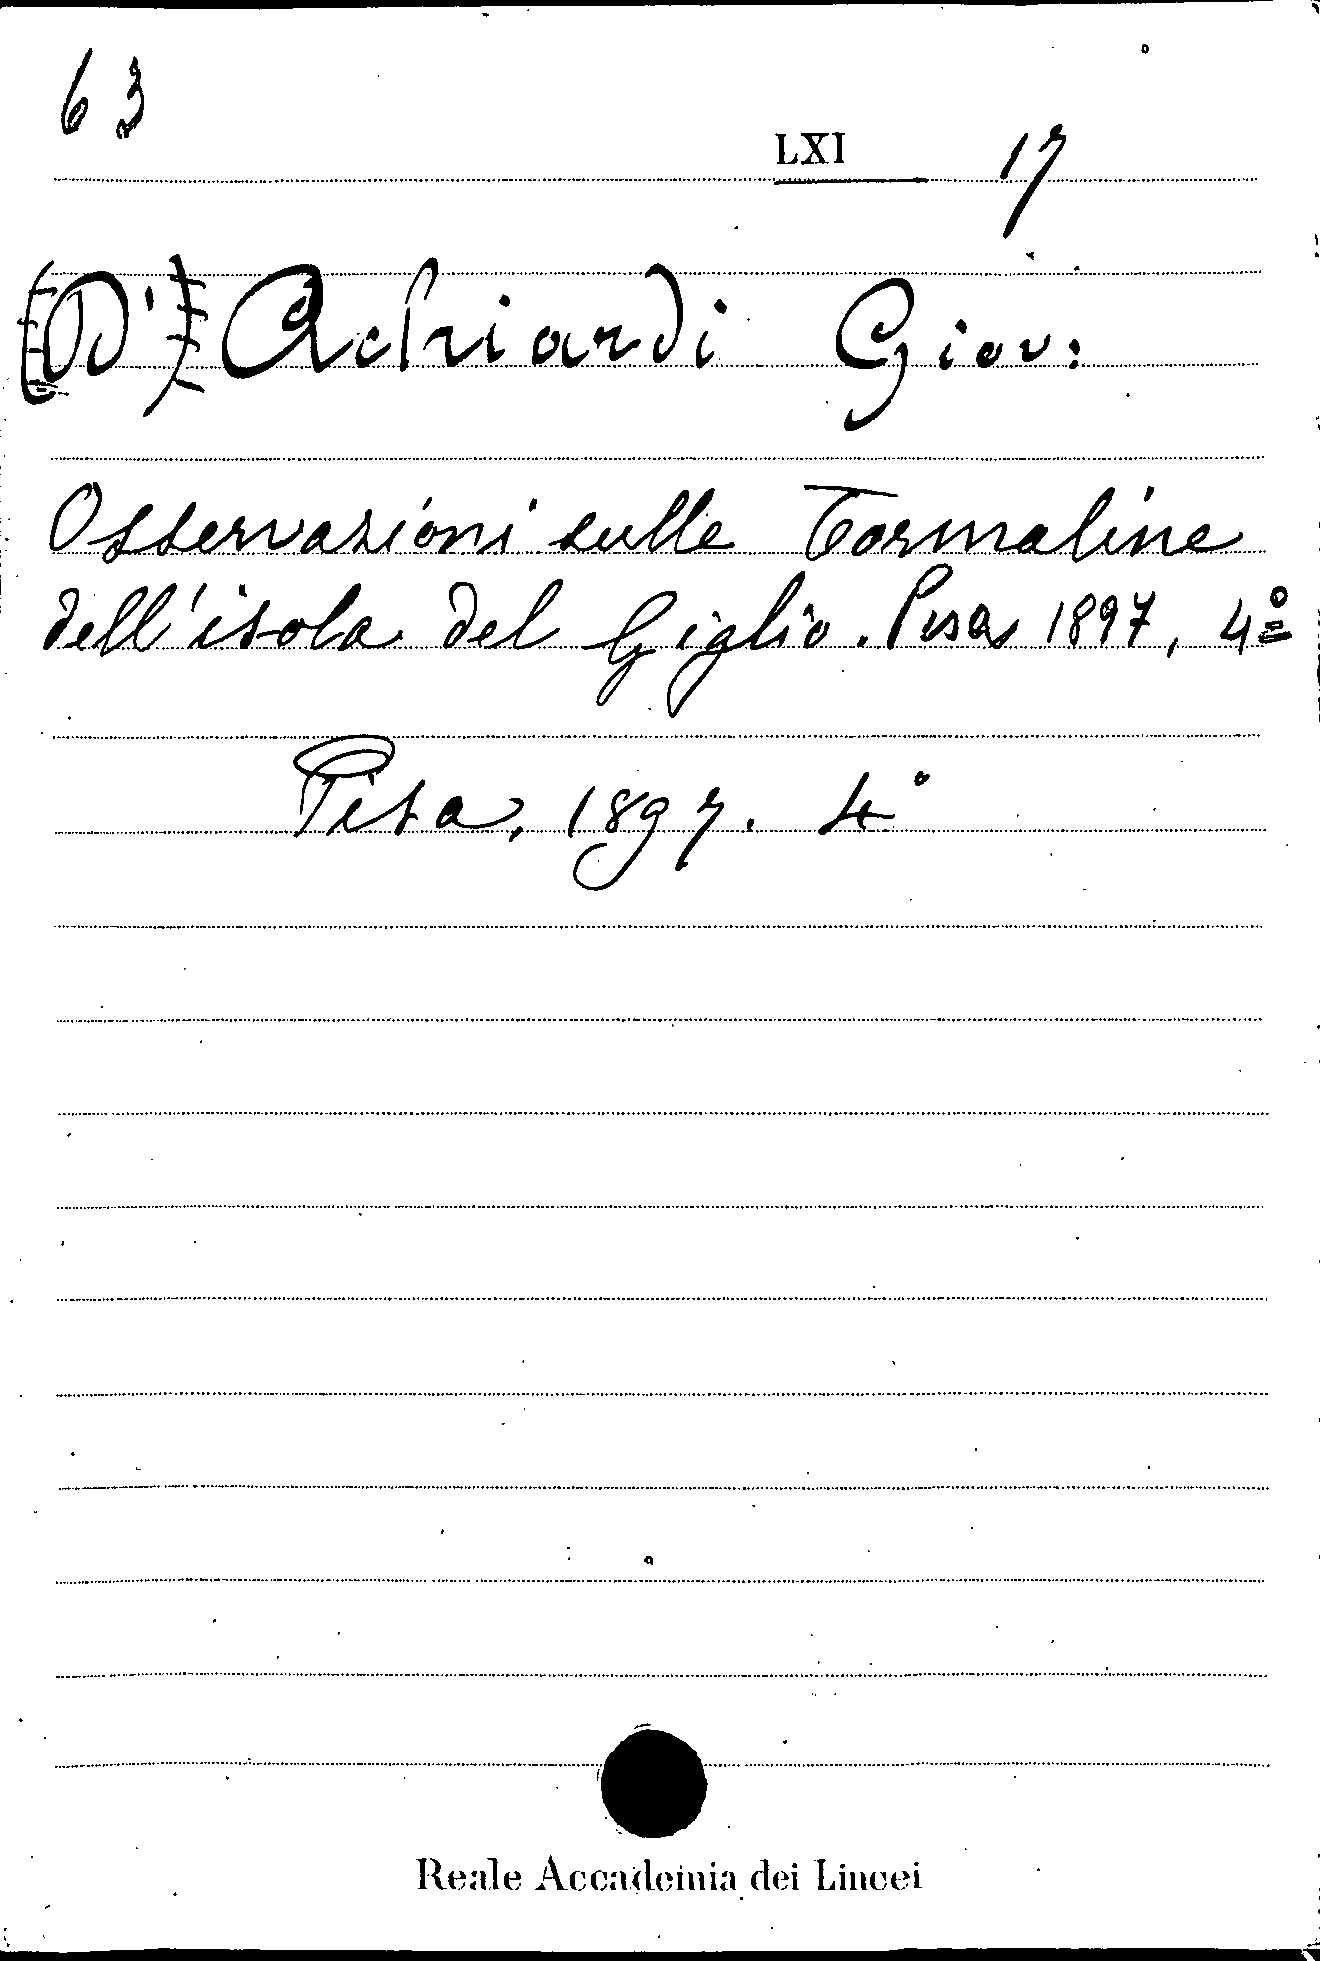 63
LXI 17
(D') Achiardi Giov:
Osservazioni sulle Tormaline
dell'isola del Giglio. Pisa 1897, 4º
Pisa, 1897. 4°
Reale Accademia dei Lincei